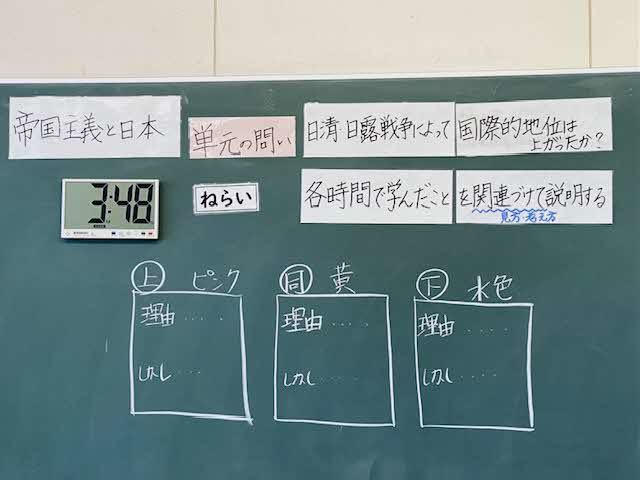 帝国主義と日本
単元の問い
日清・日露戦争によって
国際的地位は
上がったか?
3:48
ねらい
各時間で学んだこと
を関連づけて説明する
見方・考え方
上 ピンク
理由・・・・
しかし・・・・
同 黄
理由・・・・
しかし・・・・
下 水色
理由・・・・
しかし・・・・